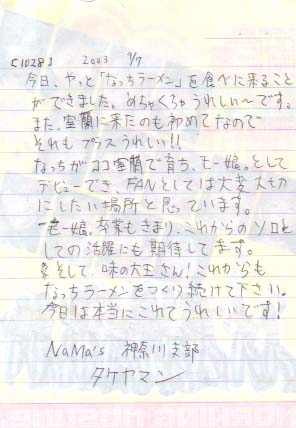 [1028] 2003 9/7
今日、やっと「なっちラーメン」を食べに来ること
ができました。めちゃくちゃうれしい〜です。
また、室蘭に来たのも初めてなので
それもプラスうれしい!!
なっちがココ室蘭で育ち、モー娘。として
デビューでき、FANとしては大変大切
にしたい場所と思っています。
モー娘。卒業もきまり、これからのソロと
しての活躍にも期待してます。
そして、味の大王さん!これからも
なっちラーメンをつくり続けて下さい。
今日は本当にこれてうれしいです!
NaMa's 神奈川支部
タケヤマン